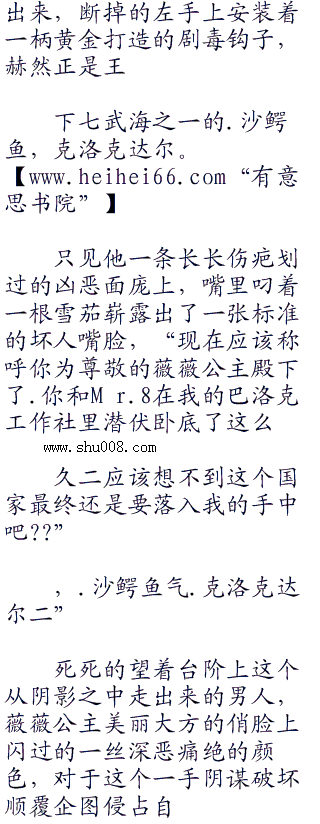 出来，断掉的左手上安装着
一柄黄金打造的剧毒钩子，
赫然正是王
下七武海之一的.沙鳄
鱼，克洛克达尔。
【www.heihei66.com“有意
思书院”】
只见他一条长长伤疤划
过的凶恶面庞上，嘴里叼着
一根雪茄崭露出了一张标准
的坏人嘴脸，“现在应该称
呼你为尊敬的薇薇公主殿下
了.你和M r.8在我的巴洛克
工作社里潜伏卧底了这么
www.shu008.com
久二应该想不到这个国
家最终还是要落入我的手中
吧??”
，.沙鳄鱼气.克洛克达
尔二”
死死的望着台阶上这个
从阴影之中走出来的男人，
薇薇公主美丽大方的俏脸上
闪过的一丝深恶痛绝的颜
色，对于这个一手阴谋破坏
顺覆企图侵占自